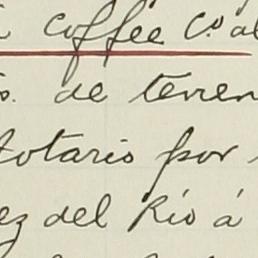 coffee Co al
de terren
Notario por
ez del Rio á